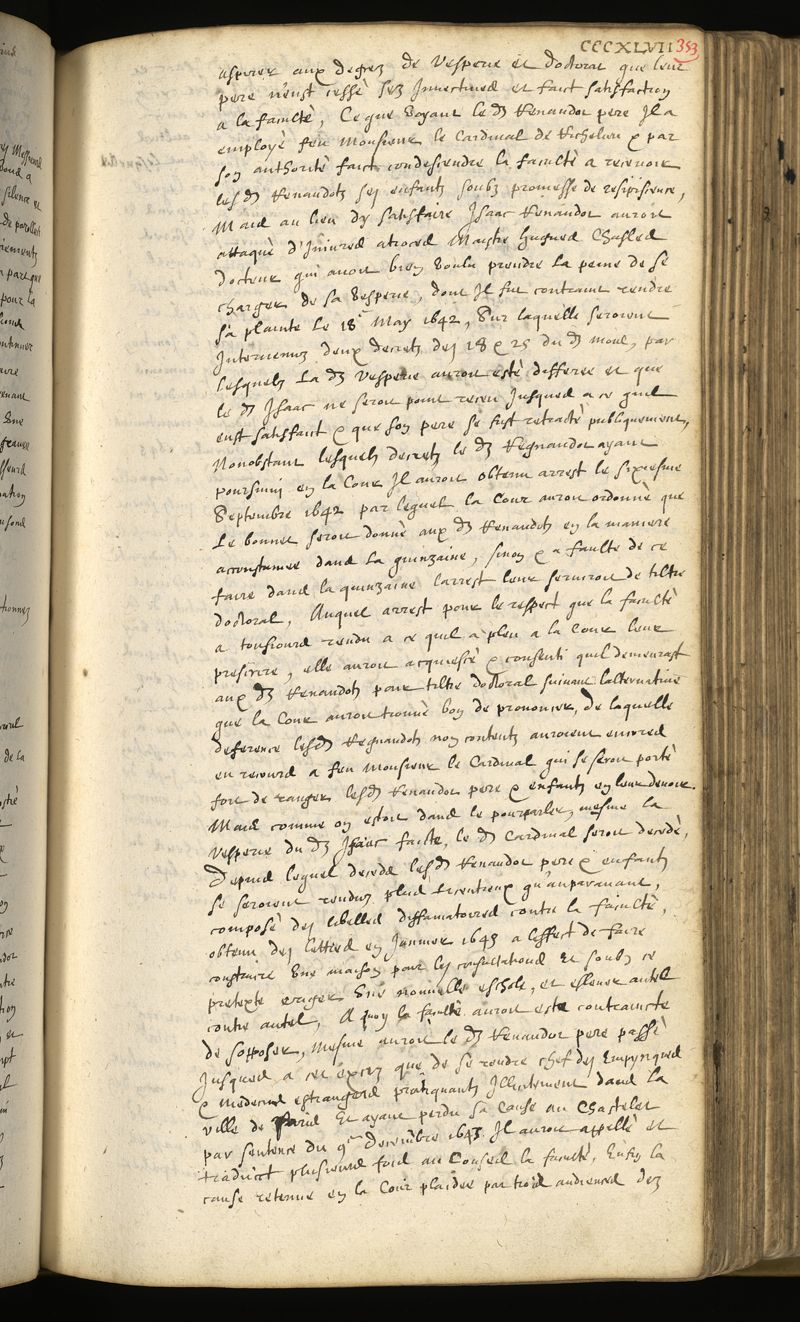 CCCXLVII 353
aspirer aux degrez de Vesperie et doctorat que leur
pere n'eust cessé ses Invectives et faict satisfaction
a la faculté, Ce que voyant led. Renaudot pere Il a
employé feu Monsieur le Cardinal de Richelieu & par
son authorité faict condescendre la faculté a recevoir
lesd. Renaudotz ses enfants soubz promesse de resipiscence,
Mais au lieu d'y satisfaire Isaac Renaudot auroit
attaqué d'Iniures atroces Maistre Hugues Chasles
docteur qui avoit bien voulu prendre la peine de se
charger de sa vesperie, dont Il fut contraint rendre
sa plainte le 18e May 1642, Sur laquelle seroient
Intervenus deux decretz des 18 & 25 dud. mois, par
lesquels lad. Vesperie auroit esté differée et que
led. Isaac ne seroit point receu Jusques a ce quil
eust satisfait & que son pere se fust retracté publiquement,
Nonobstant lesquels decretz led. Regnaudot ayant
poursuivy en la Cour Il auroit obtenu arrest le sixiesme
Septembre 1642 par lequel la Cour auroit ordonné que
Le bonnet seroit donné auxd. Renaudotz en la maniere
accoustumee dans la quinzaine, sinon & a faulte de ce
faire dans la quinzaine l'arrest leur serviroit de tiltre
doctoral, Auquel arrest pour le respect que la faculté
a tousiours rendu a ce quil a pleu a la Cour leur
prescrire, elle auroit acquiescé & consenti quil demeurast
auxd. Renaudotz pour tiltre doctoral suivant l'alternative
que la Cour auroit trouvé bon de prononcer, de laquelle
deference lesd. Regnaudotz non contents auroient encores
eu recours a feu Monsieur le Cardinal qui se seroit porté
fort de ranger lesd. Renaudot pere & enfants en leur devoir.
Mais comme on estoit dans le pourparler, mesme la
Vesperie dud. Isaac faicte, led. Cardinal seroit decedé,
Depuis lequel deceds lesd. Renaudot pere & enfants
se seroient rendus plus Licentieux qu'auparavant,
composé des libelles diffamatoires contre la faculté,
obtenu des lettres en Janvier 1643 a l'effect de faire
construire Une maison pour les consultations Et soubz ce
pretexte eriger Une nouvelle eschole, et eslever autel
contre autel, A quoy la faculté auroit esté contraincte
de s'opposer, Mesme auroit led. Renaudot pere passé
Jusques a cet excez que de se rendre chef des Empyriques
& medecins estrangers pratiquants Illicitement dans la
ville de Paris Et ayant perdu sa Cause au Chastelet
par sentence du 9e Decembre 1643 Il auroit appellé et
traduict plusieurs fois au Conseil la faculté, Enfin la
cause retenue en la Cour plaidée par trois audiences des